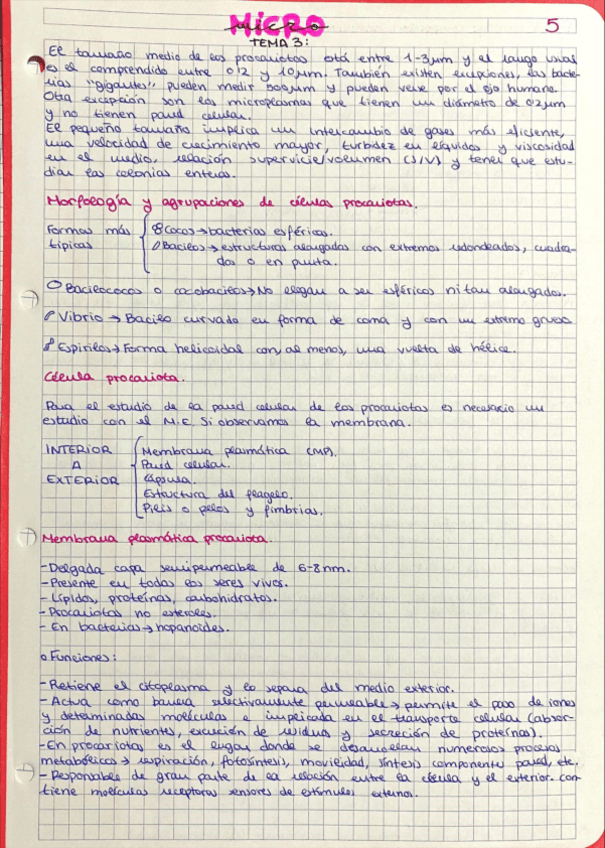 MICRO
micro
5
TEMA 3:
El tamaño medio de los procariotas está entre 1-3µm y el rango usual
es el comprendido entre 0'2 y 10µm. También existen excepciones, las bacte-
rias "gigantes" pueden medir 500µm y pueden verse por el ojo humano.
Otra excepción son los microplasmas que tienen un diámetro de 0'2µm
y no tienen pared celular.
El pequeño tamaño implica un intercambio de gases más eficiente,
una velocidad de crecimiento mayor, turbidez en líquidos y viscosidad
en el medio, relación supervicie/volumen (S/V) y tener que estu-
diar las colonias enteras.
Morfología y agrupaciones de células procariotas.
Formas más
típicas
Cocos→bacterias esféricas.
Bacilos→estructuras alargadas con extremos redondeados, cuadra-
dos o en punta.
Bacilococos o cocobacilos→No llegan a ser esféricos ni tan alargados.
Vibrio→Bacilo curvado en forma de coma y con un extremo grueso
Espirilos→Forma helicoidal con, al menos, una vuelta de hélice.
Célula procariota.
Para el estudio de la pared celular de los procariotas es necesario un
estudio con el M.E. Si observamos la membrana.
INTERIOR
A
EXTERIOR
Membrana plasmática (MP).
Pared celular.
Cápsula.
Estructura del flagelo.
Pilis o pelos y fimbrias.
Membrana plasmática procariota.
-Delgada capa semipermeable de 6-8nm.
-Presente en todos los seres vivos.
-Lípidos, proteínas, carbohidratos.
-Procariotas no esteroles.
-En bacterias→hopanoides.
o Funciones:
-Retiene el citoplasma y lo separa del medio exterior.
-Actúa como barrera selectivamente permeable→permite el paso de iones
y determinadas moléculas e implicada en el transporte celular (absor-
ción de nutrientes, excreción de residuos y secreción de proteínas).
-En procariotas es el lugar donde se desarrollan numerosos procesos
metabólicos→respiración, fotosíntesis, movilidad, síntesis componente pared, etc.
-Responsable de gran parte de la relación entre la célula y el exterior. con-
tiene moléculas receptoras sensores de estímulos externos.